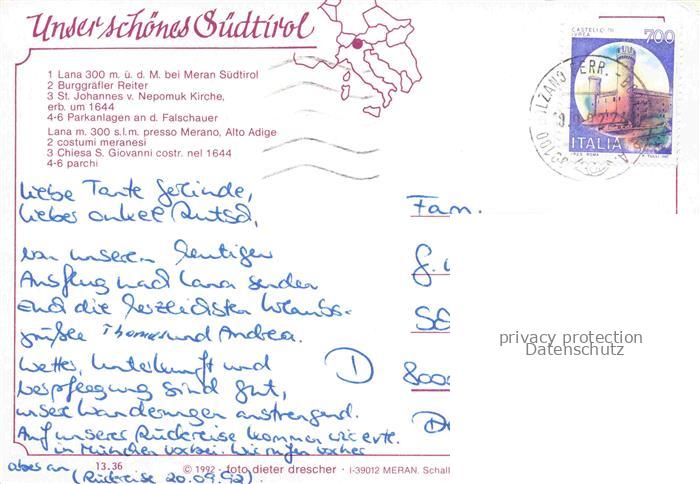 Unser schönes Südtirol
1 Lana 300 m. ü. d. M. bei Meran Südtirol
2 Burggräfler Reiter
3 St. Johannes v. Nepomuk Kirche,
erb. um 1644
4-6 Parkanlagen an d. Falschauer
Lana m. 300 s.l.m. presso Merano, Alto Adige
2 costumi meranesi
3 Chiesa S. Giovanni costr. nel 1644
4-6 parchi
CASTELLO DI
IVREA
700
ITALIA
Liebe Tante Gerlinde,
lieber Onkel Rutsch,
von unseren heutigen
Ausflug nach Lana senden
Euch die herzlichsten Urlaubs-
grüße Thomas und Andrea.
Wetter, Unterkunft und
Verpflegung sind gut,
unsere Wanderungen anstrengend.
Auf unserer Rückreise kommen wir evtl.
in München vorbei. Wir rufen vorher
aber an (Rückreise 20.09.92).
Fam.
G.
8000
privacy protection
Datenschutz
13.36 © 1992 - foto dieter drescher - I-39012 MERAN. Schall